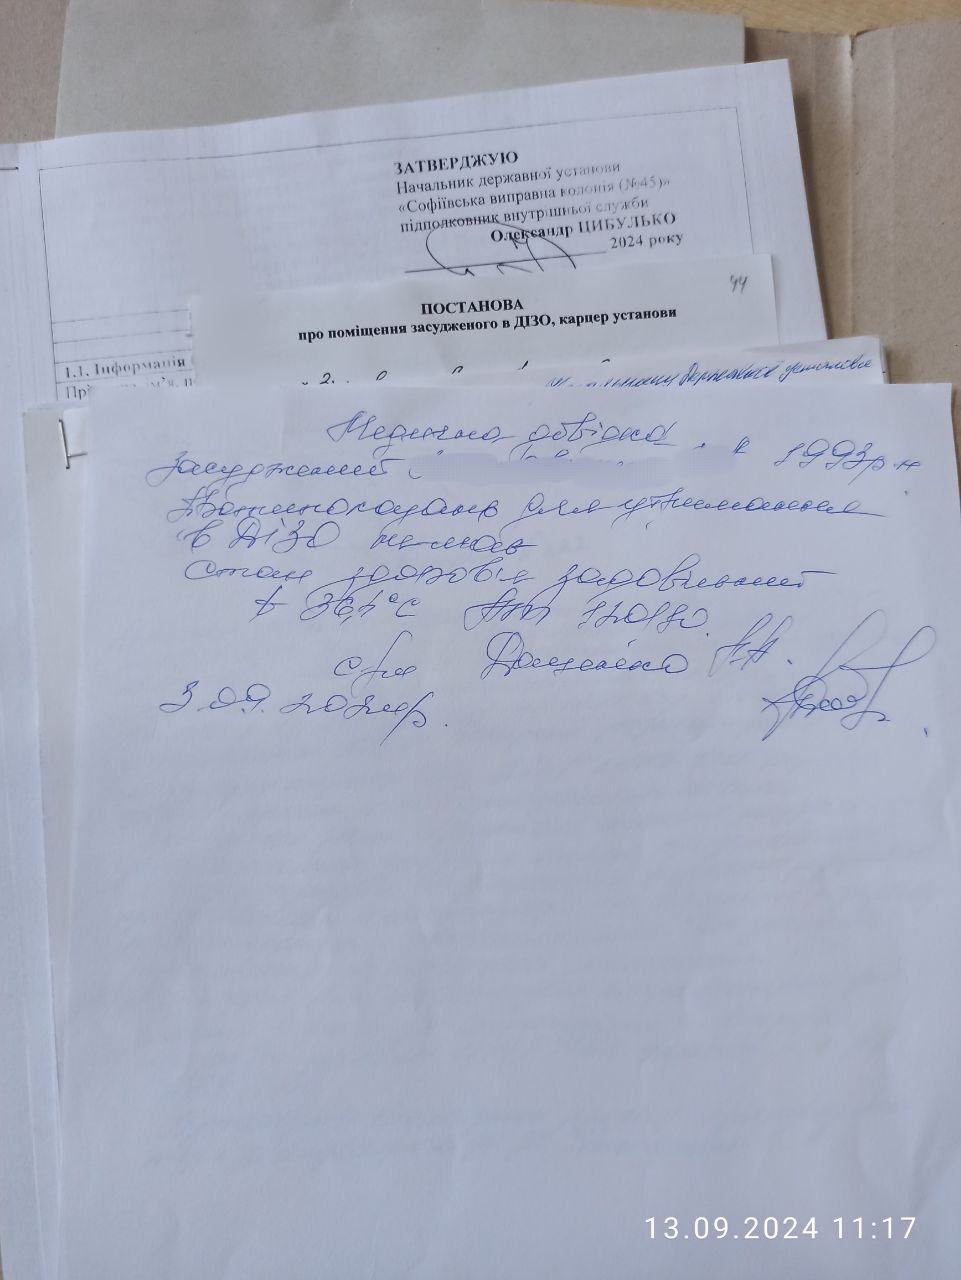 ЗАТВЕРДЖУЮ
Начальник державної установи
«Софіївська виправна колонія (№45)»
підполковник внутрішньої служби
Олександр ЦИБУЛЬКО
2024 року
44
ПОСТАНОВА
про поміщення засудженого в ДІЗО, карцер установи
1.1. Інформація
державної установи
Медична довідка
Засуджений 1993р.н
Протипоказань для утримання
в ДІЗО не має
Стан здоров'я задовільний
t 36,1°С АТ 120/80.
3.09.2024р.
13.09.2024 11:17